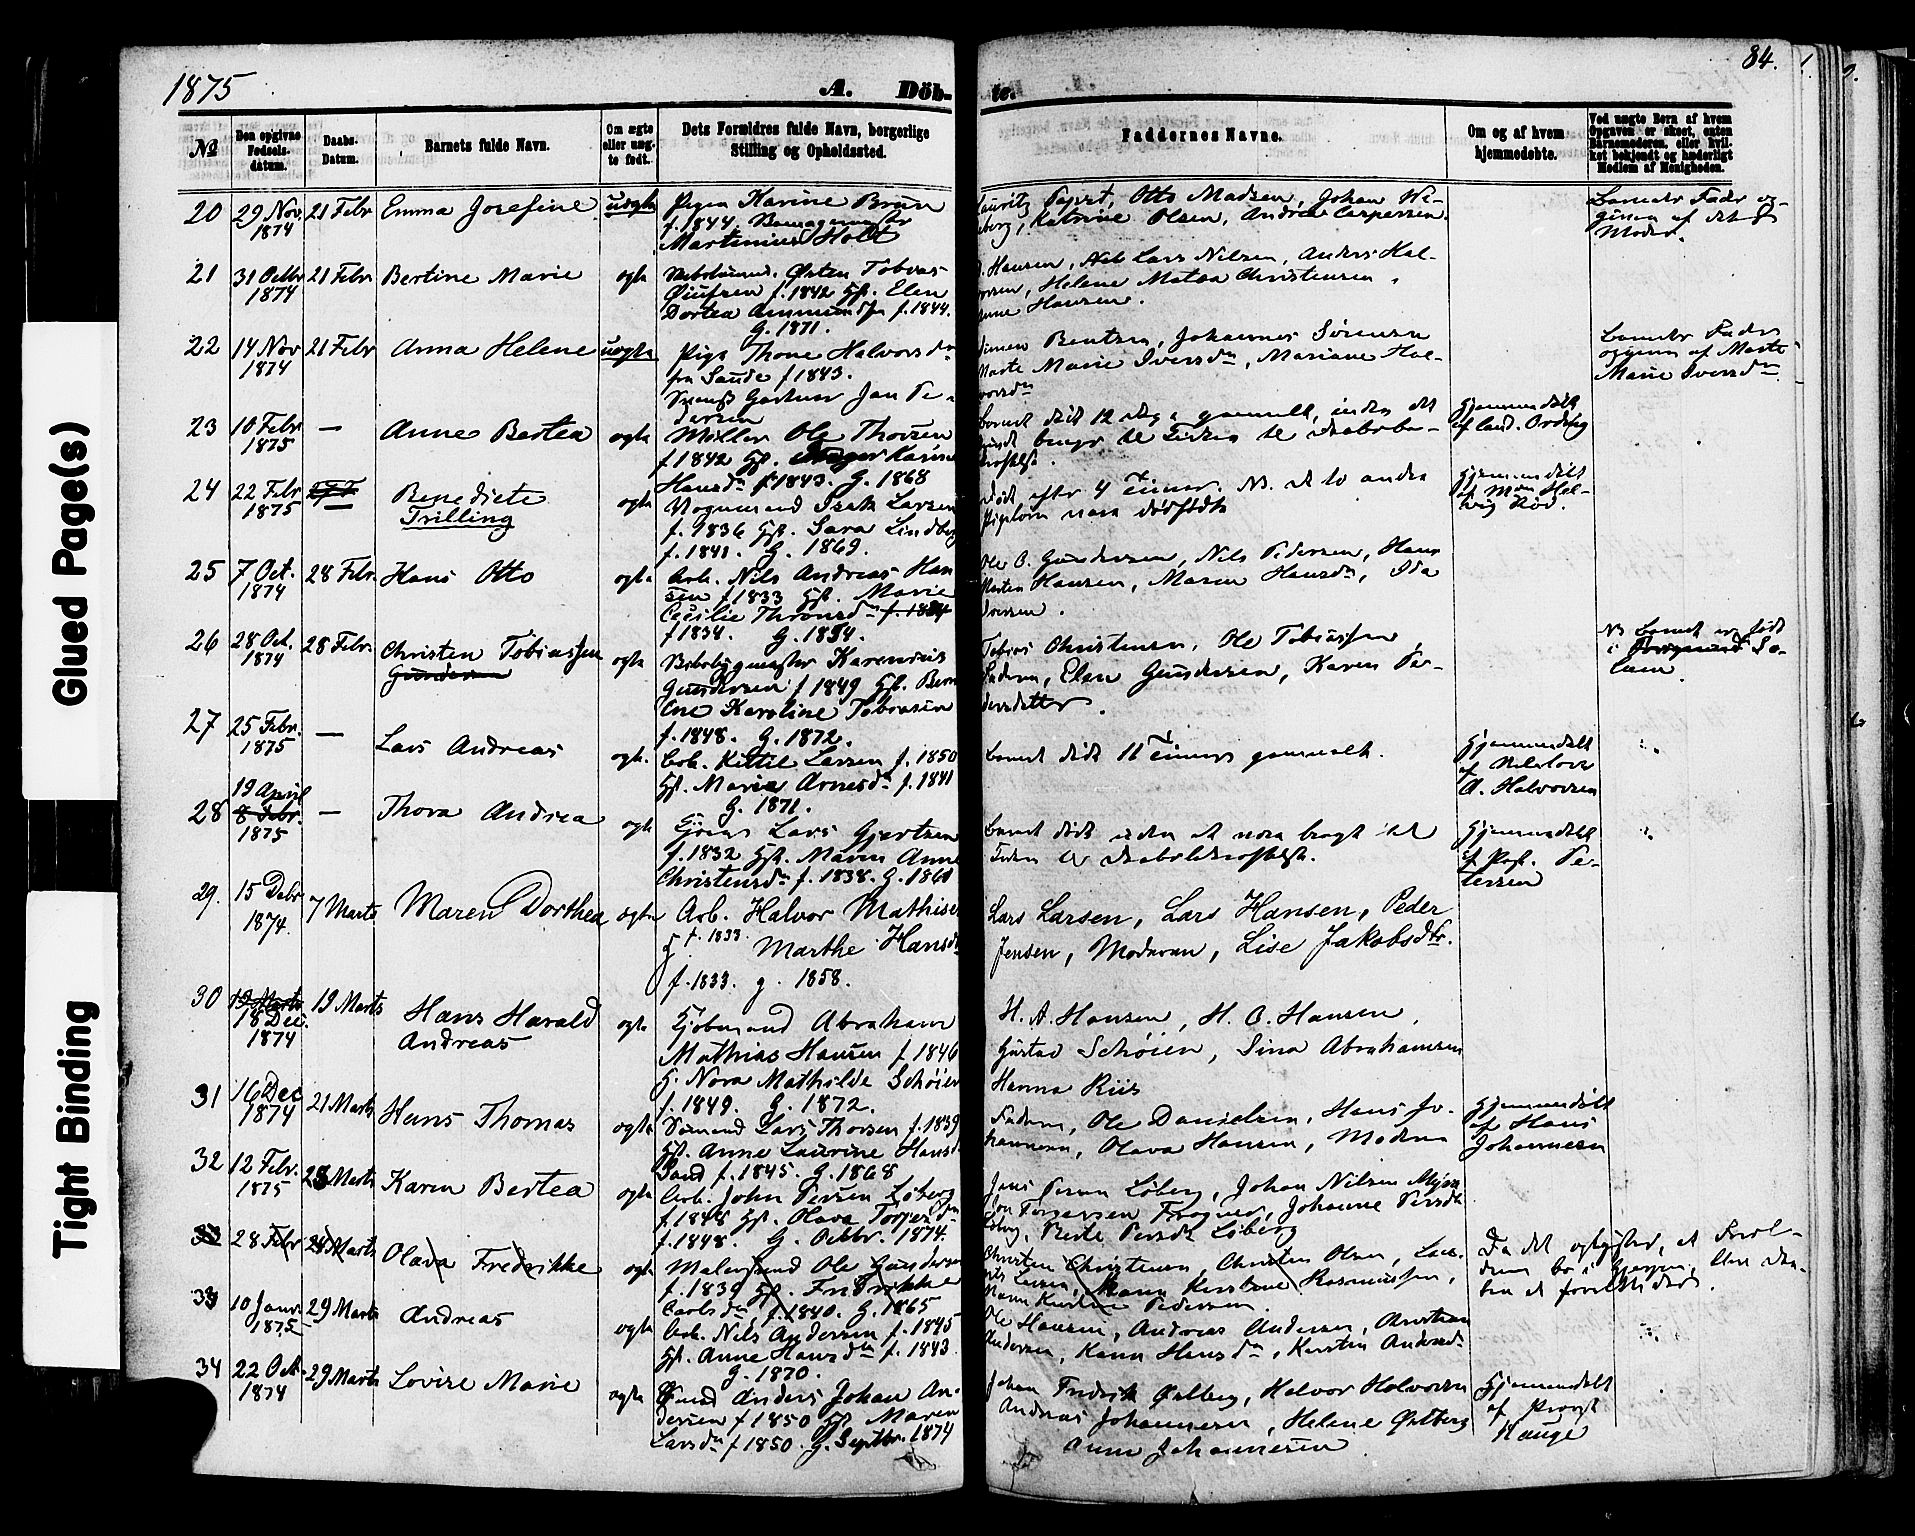 1875
A. Döb-
te.
84.
№
Den opgivne Fødsels-datum.
Daabs-Datum.
Barnets fulde Navn.
Om ægte eller uægte født.
Dets Forældres fulde Navn, borgerlige Stilling og Opholdssted.
Faddernes Navne.
Om og af hvem hjemmedøbte.
Ved uægte Børn af hvem Opgaven er skeet, enten Barnemoderen, eller hvilket bekjendt og hæderligt Medlem af Menigheden.
Glued Page(s)
Tight Binding
20 29 Nov 1874 21 Febr Emma Josefine uægte
Pigen Karine Bruun
f. 1844
Martinius Holt
Otto Madsen, Johan
Katrine Olsen, Andrea Caspersen.
Barnets Fader op-
given af dets
Moder.
21 31 Octbr 1874 21 Febr Bertine Marie ægte
Østen Tobias
f. 1842 Hst. Elen
Dortea f. 1844.
G. 1871.
Hansen, Lars Nilsen, Anders Hal-
Helene Matea Christensen
Hansen.
22 14 Nov 1874 21 Febr Anna Helene uægte
Pige Thone Halvorsdn
fra Saude f 1843.
Jan Pe-
dersen
Bentsen, Johannes Sørensen
Marte Marie Iversdn, Mariane Hal-
vorsdn
Barnets Fader
opgiven af Marte
Marie Iversdn
23 10 Febr 1875 — Anne Bertea ægte
Møller Ole Thorsen
f 1842 Hst. Karine
Hansdn f 1843. G. 1868
Barnet død 12 Dage gammelt, inden det
Hjemmedøbt
af
24 22 Febr 1875 — Benedicte
Trilling ægte
Vognmand Isak Larsen
f. 1836 Hst. Sara Lindberg
f. 1841. G. 1869.
Død efter 4 Timer. NB. de to andre
vare dødfødte
Hjemmedøbt
af Mad. Hel-
vig Rød.
25 7 Oct. 1874 28 Febr. Hans Otto ægte
Arb. Nils Andreas Han
sen f 1833 Hst. Marie
Cecilie
f 1834. G. 1854.
Ole O. Gundersen, Nils Pedersen, Hans
Morten Hansen, Maren Hansdn, Ida
Iversen.
26 28 Oct. 1874 28 Febr. Christen Tobiassen
Gundersen ægte
Karenius
Gundersen f 1849 Hst. Bern
tine Karoline Tobiasen
f. 1848. G. 1872.
Tobias Christensen, Ole Tobiassen
Faderen, Elen Gundersen, Karen Pe-
dersdatter.
NB Barnet er født
i
27 25 Febr. 1875 — Lars Andreas ægte.
Arb. Kittil Larsen f. 1850
Hst. Marie Arnesdn f. 1841
G. 1871.
Barnet død 11 Timer gammelt.
Hjemmedøbt
af
A. Halvorsen
28 19 April
8 Febr.
1875 — Thora Andrea ægte
Lars Gjertsen
f. 1832 Hst. Maren Anne
Christensdn f. 1838. G. 1861
Barnet død uden at være bragt til
Hjemmedøbt
af Past. Pe-
tersen
29. 15 Debr 1874. 7 Marts Maren Dorthea ægte
Arb. Halvor Mathisen
f. 1833 Marthe Hansdt
f. 1833. g. 1858.
Lars Larsen, Lars Hansen, Peder
Jensen, Moderen, Lise Jakobsdtr.
30 19 Marts
18 Dec. 1874 19 Marts Hans Harald
Andreas ægte
Kjøbmand Abraham
Mathias Hansen f 1846
H. Nora Mathilde Schøien
f. 1849. G. 1872.
H. A. Hansen, H. O. Hansen,
Gustav Schøien, Sina Abrahamsen
Hanna Riis
31 16 Dec 1874 21 Marts Hans Thomas ægte
Sømand Lars Thorsen f. 1839
Hst. Anne Laurine Hans
Sand f. 1845. G. 1868
Faderen, Ole Danielsen, Hans Jo-
hannesen, Olava Hansen, Moderen
Hjemmedøbt
af Hans
Johannesen
32 12 Febr. 1875 28 Marts Karen Bertea ægte
Arb. John Persen Løberg
f. 1848 Hst. Olava Torgersdn
f. 1848. G. Octbr. 1874.
Jens Persen Løberg, Johan Nilsen
Torgersen Frogner, Johanne Persdt
Løberg, Berte Persdt Løberg
33 28 Febr 24 Marts Olava Fredrikke ægte
Malersvend Ole Gundersen
f. 1839 Hst. Fredrikke
Carlsdn f. 1840. G. 1865
Christen Christensen, Christen Olsen, Lau-
rits Larsen, Karen Kirstine Rasmussen,
Karen Kirstine Pedersen.
Da det oplystes, at Foræl-
drene bo i Gjerpen, blev Daa-
ben ei foretaget her.
33 10 Janr 1875 29 Marts Andreas ægte
Arb. Nils Andersen f. 1845
Hst. Anne Hansdn f. 1843.
G. 1870.
Ole Hansen, Andreas Andersen, Christian
Andersen, Karen Hansdn, Kirstin Andersdn
34 22 Oct. 1874 29 Marts Lovise Marie ægte
Anders Johan An-
dersen f 1850 Hst Maren
Larsdn f 1850. G. Septbr. 1874
Johan Fredrik Østberg, Halvor Halvorsen
Andreas Johannesen, Helene Østberg
Anne Johannesen
Hjemmedøbt
af Provst
Hauge